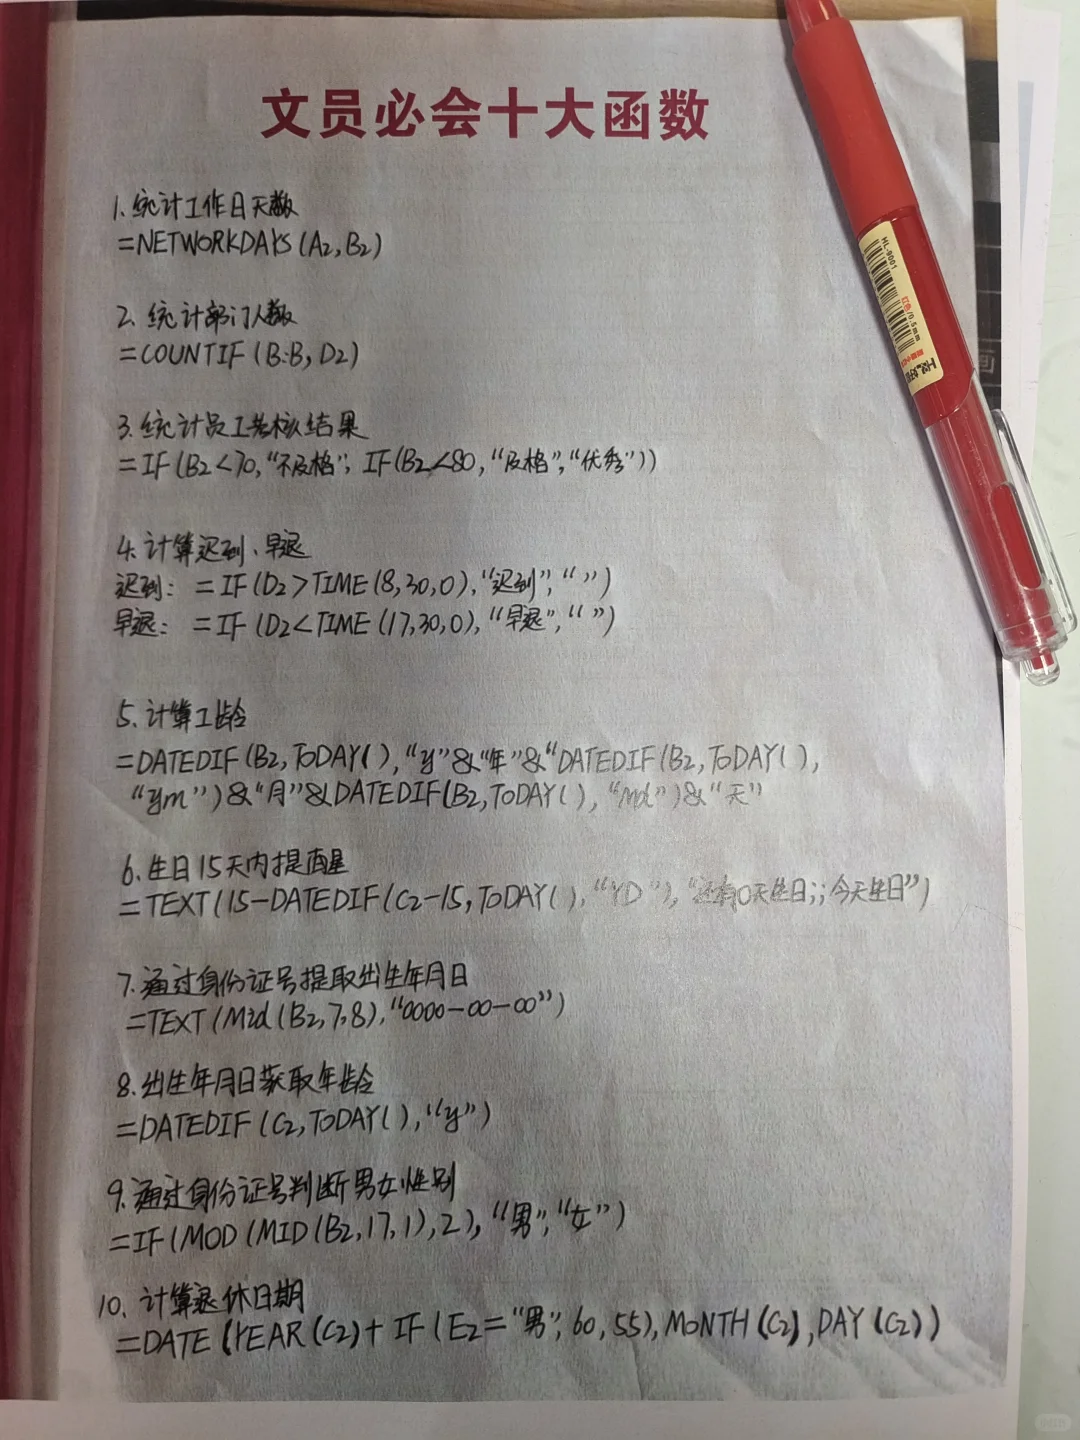 文员必会十大函数
1.统计工作日天数
=NETWORKDAYS(A2,B2)
2.统计部门人数
=COUNTIF(B:B,D2)
3.统计员工考核结果
=IF(B2<70,“不及格”,IF(B2<80,“及格”,“优秀”))
4.计算迟到、早退
迟到：=IF(D2>TIME(8,30,0),“迟到”,“ ”)
早退：=IF(D2<TIME(17,30,0),“早退”,“ ”)
5.计算工龄
=DATEDIF(B2,ToDAY(),“y”&“年”&“DATEDIF(B2,ToDAY(),
“ym”)&“月”&DATEDIF(B2,ToDAY(),“Md”)&“天”
6.生日15天内提醒
=TEXT(15-DATEDIF(C2-15,ToDAY(),“YD”),“还有0天生日;;今天生日”)
7.通过身份证号提取出生年月日
=TEXT(Mid(B2,7,8),“0000-00-00”)
8.出生年月日获取年龄
=DATEDIF(C2,ToDAY(),“y”)
9.通过身份证号判断男女性别
=IF(MOD(MID(B2,17,1),2),“男”,“女”)
10.计算退休日期
=DATE(YEAR(C2)+IF(E2=“男”,60,55),MONTH(C2),DAY(C2))
HL-9001
红色/0.5mm